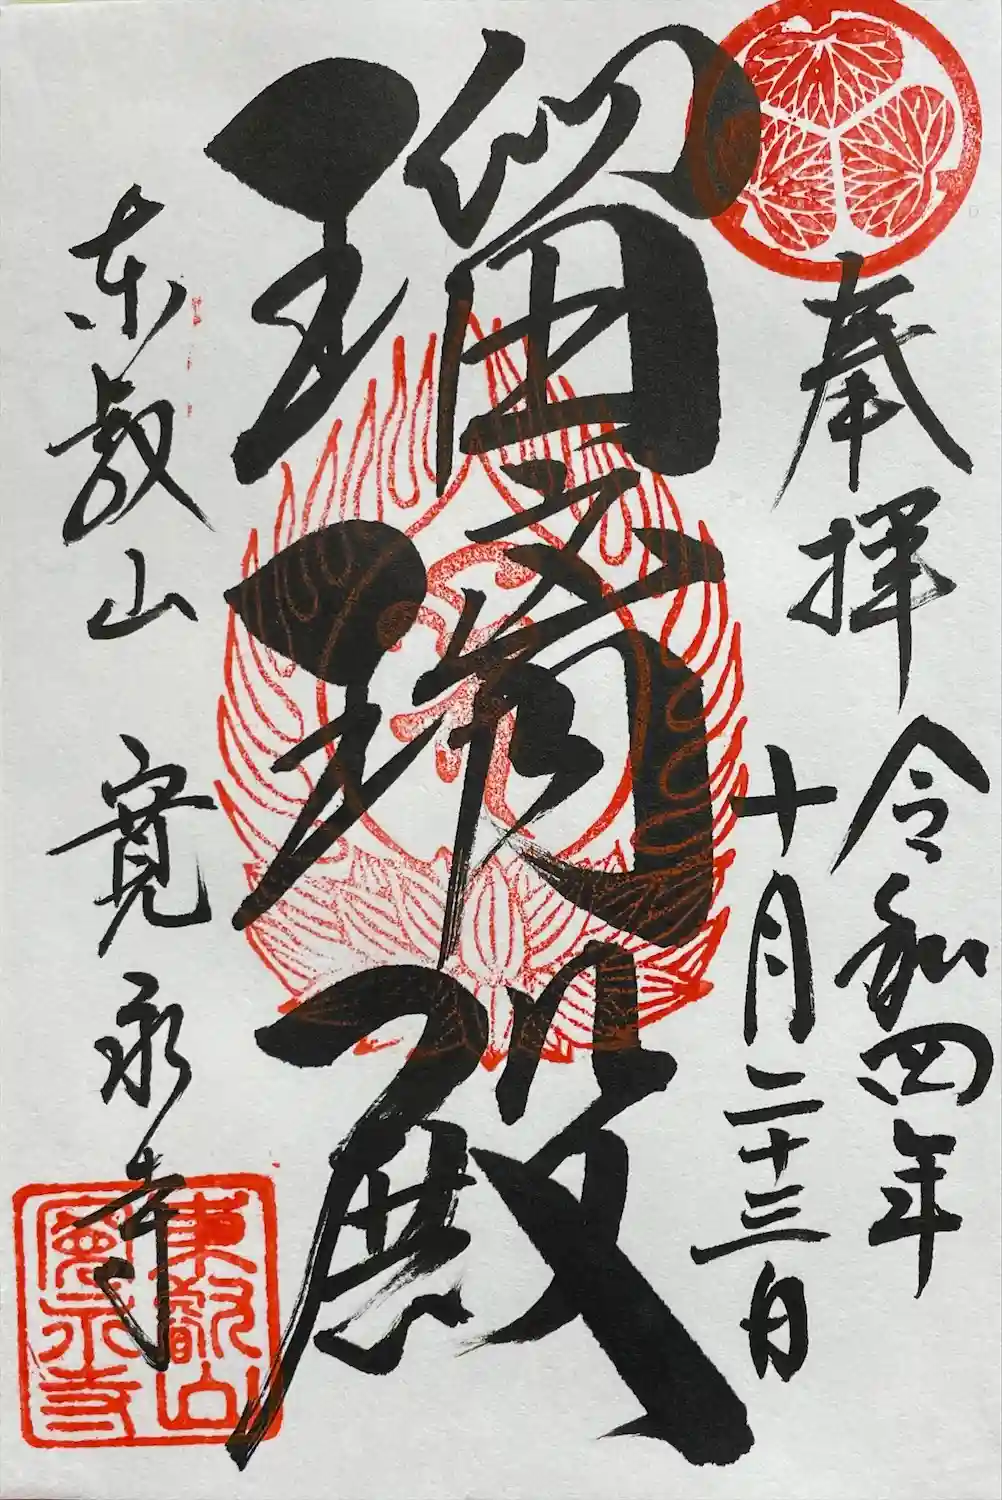 奉拝
令和四年
十月二十三日
瑠璃殿
東叡山 寛永寺
東叡山
寛永寺